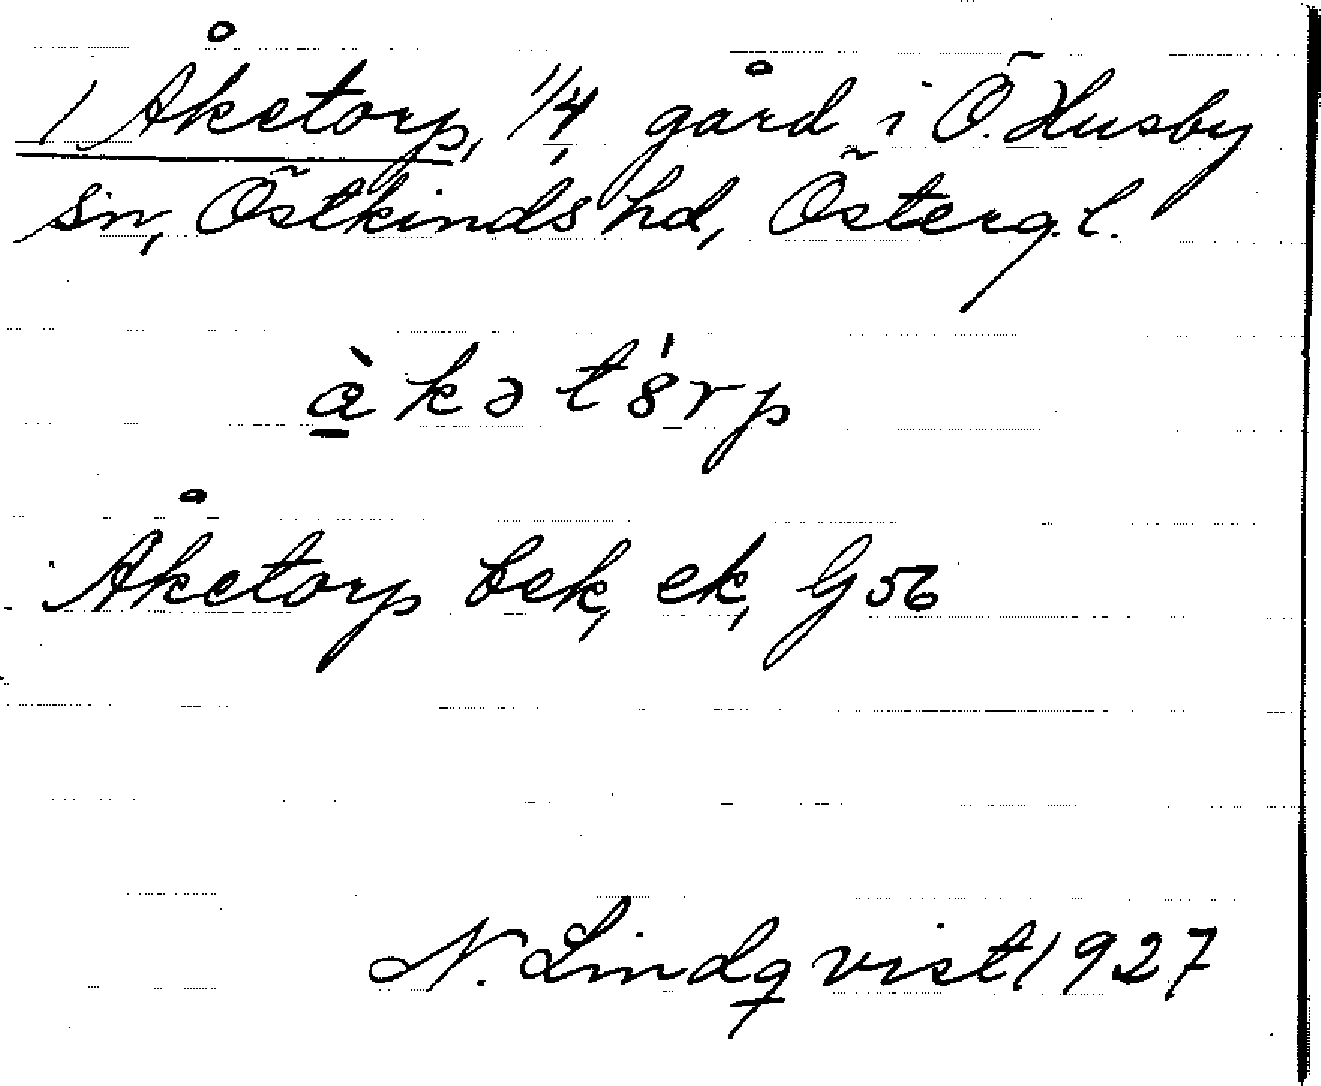 1 Åketorp, 1/4 gård i Ö. Husby
sn, Östkinds hd, Österg. l.
à̱kətó̤rp
Åketorp bek, ek, G 56
N. Lindqvist 1927